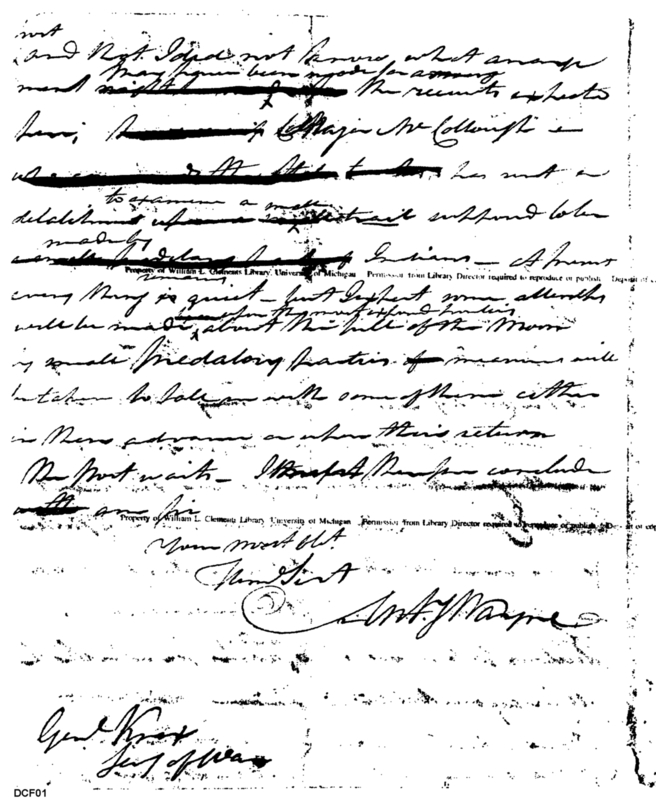 not
and that I did not know what arrange
may have been made for
ment might the recruits expected
here; Major McCollough
has sent a
to examine a small
detachment suppos'd to be
made by
Indians — At present
Property of William L. Clements Library, University of Michigan Permission from Library Director required to reproduce or publish. Deposit of
remains
every thing is quiet — but I expect some attempts
for the most expos'd
will be made about the full of the Moon
by small predatory parties means will
be taken to fall in with some of them either
in their advance or when they return
The Post waits — I must therefore conclude
Property of William L. Clements Library, University of Michigan Permission from Library Director required to reproduce or publish. Deposit or cop
Your most Obt
Humb Sert
Ant.y Wayne
Genl. Knox
Secy of War
DCF01